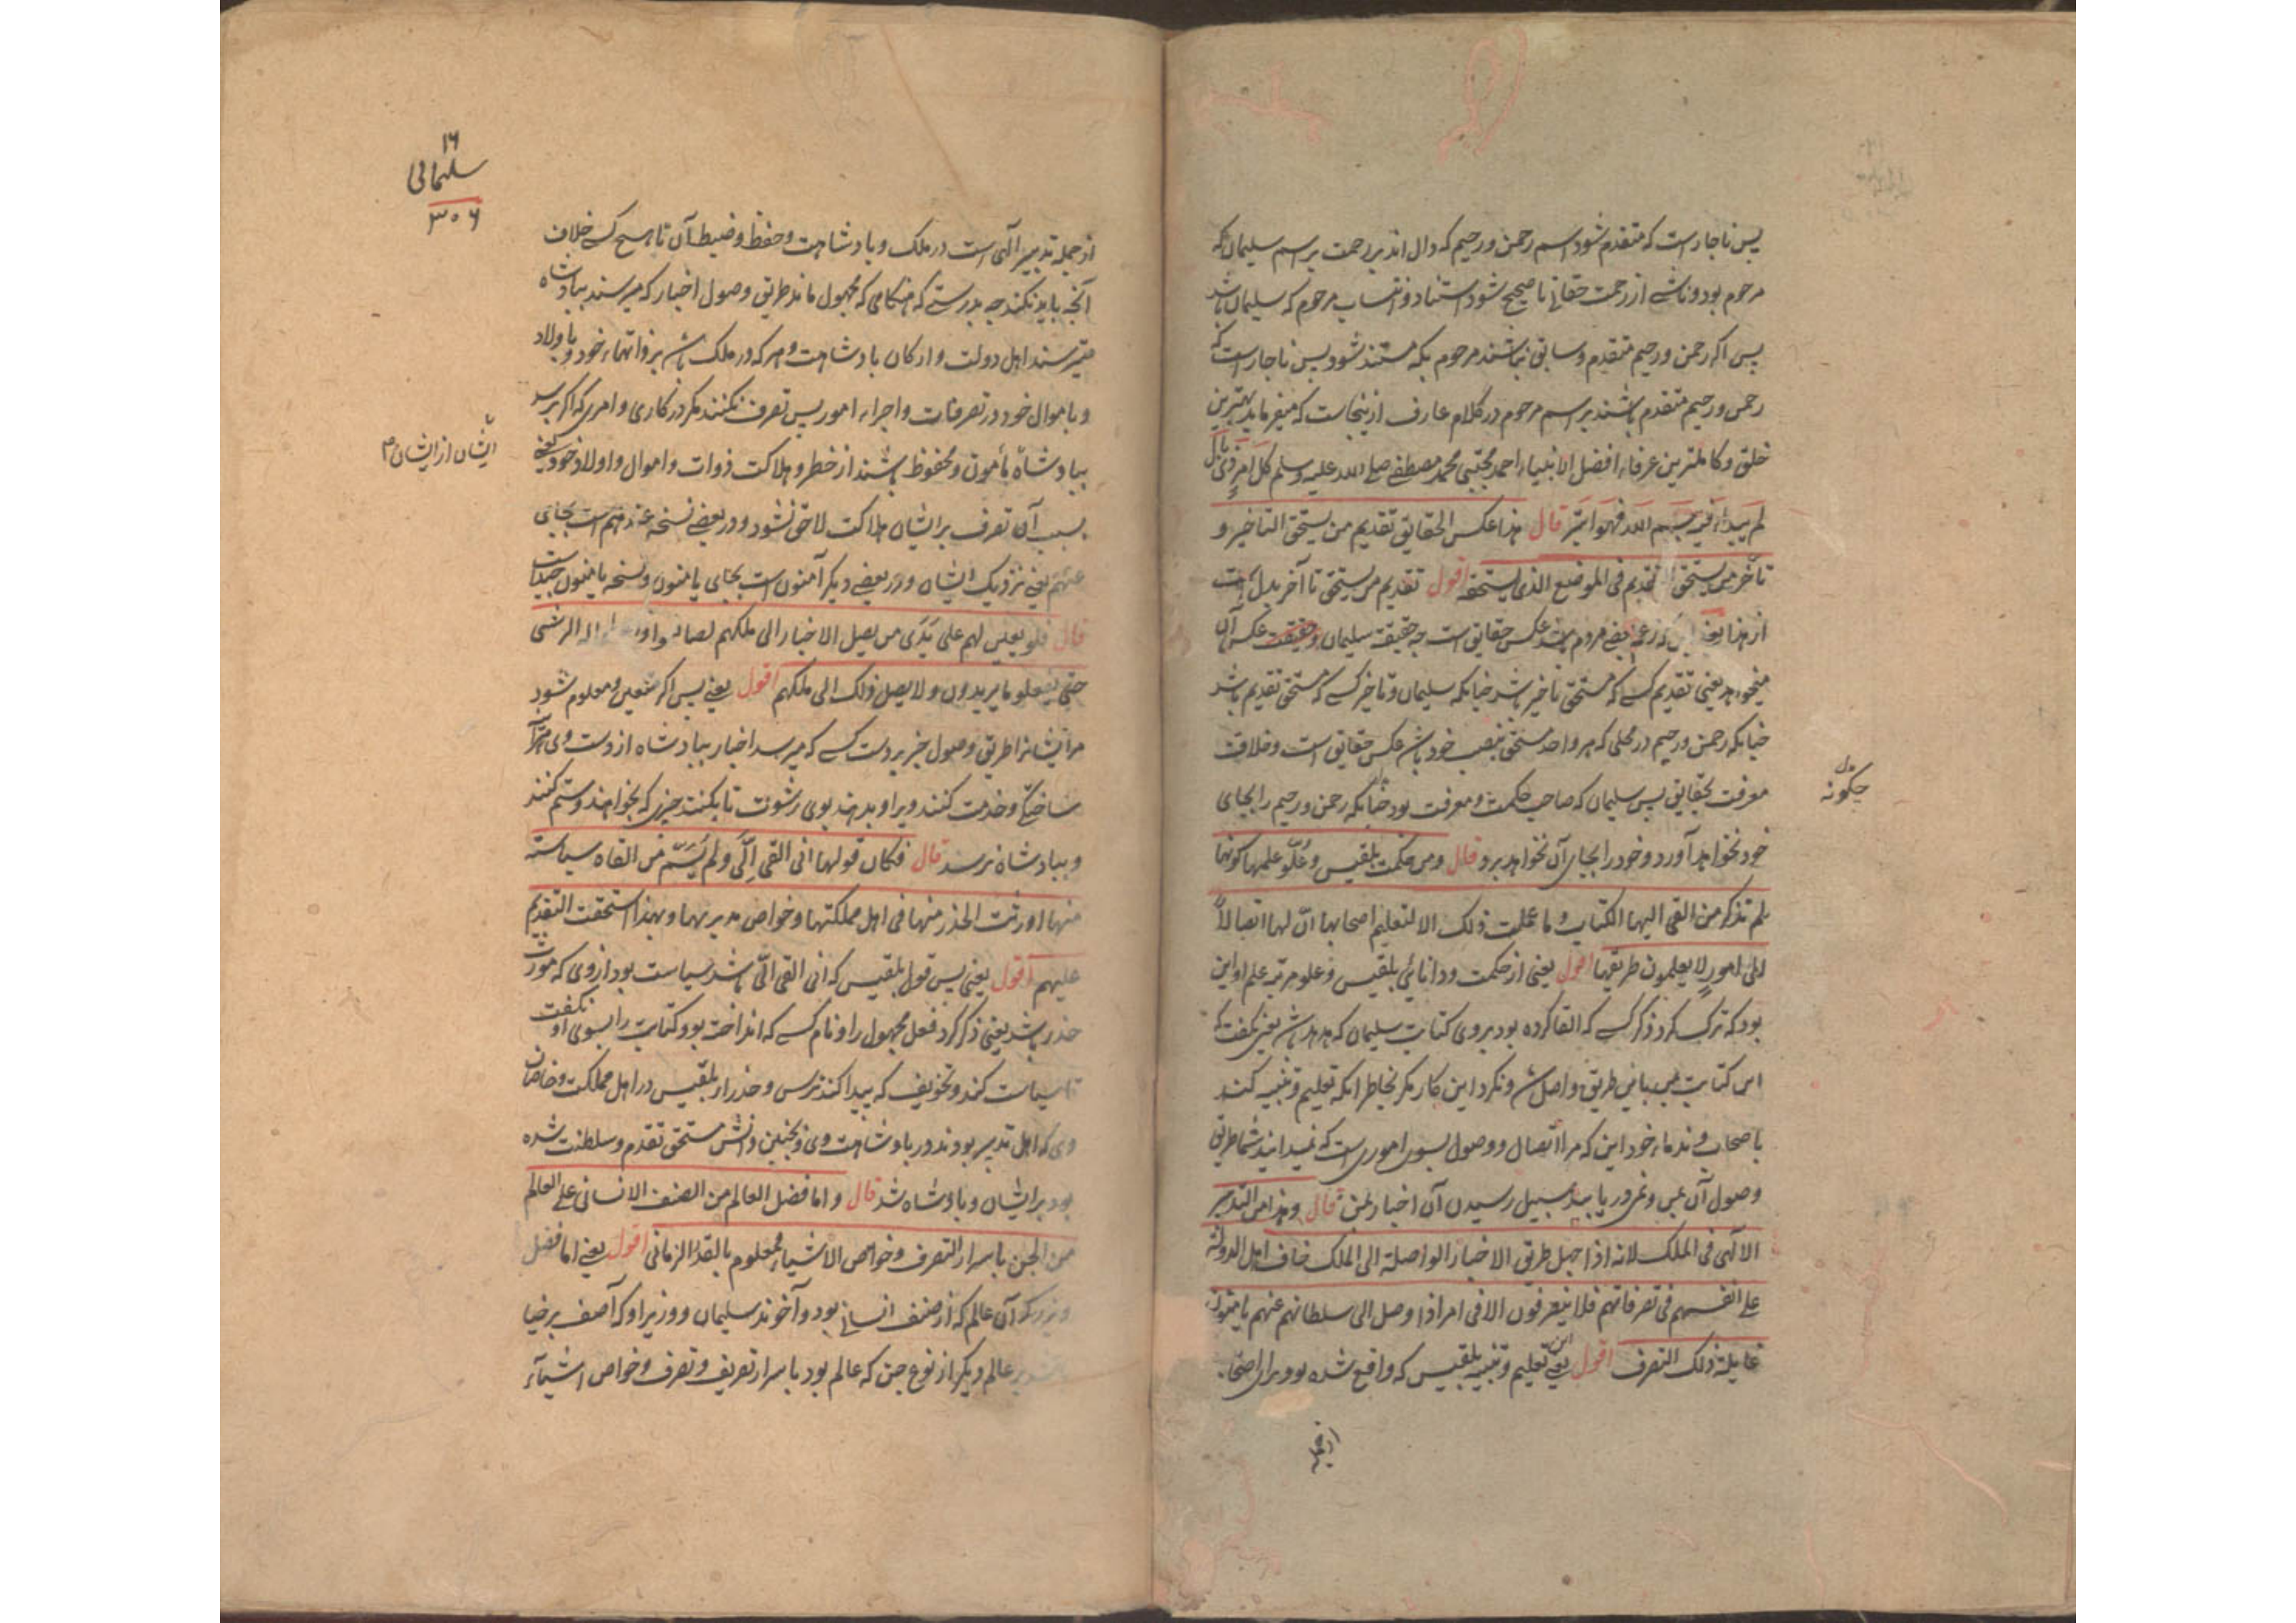 پس ناچار است که متقدم شود اسم رحمن و رحیم که دال اند بر رحمت بر اسم سلیمان که
مرحوم بود و ناشی از رحمت حقانی تا صحیح شود استناد و انتساب مرحوم که سلیمان باشد
پس اگر رحمن و رحیم متقدم و سابق نباشند مرحوم بکه مستند شود پس ناچار است که
رحمن و رحیم متقدم باشند بر اسم مرحوم در کلام عارف ازینجاست که میفرماید بهترین
خلق و کاملترین عرفاء افضل الانبیاء احمد مجتبی محمد مصطفی صلی الله علیه وسلم کل امر ذی بال
لم یبدأ فیه بسم الله فهو ابتر قال هذا عکس الحقایق تقدیم من یستحق التأخیر و
تأخر من یستحق التقدیم فی الموضع الذی یستحقه اقول تقدیم من یستحق تا آخر بدل است
از هذا یعنی این که زعم بعضی مردم باشد عکس حقایق است چه حقیقت سلیمان و حقیقت عکس آن
میخواهد یعنی تقدیم کسی که مستحق تأخیر باشد چنانکه سلیمان و تأخیر کسی که مستحق تقدیم باشد
چنانکه رحمن و رحیم در محلی که هر واحد مستحق بنصب خود باشد عکس حقایق است و خلاف
معرفت بحقایق پس سلیمان که صاحب حکمت و معرفت بود چنانکه رحمن و رحیم را بجای
چگونه
خود نخواهد آورد و خود را بجای آن نخواهد برد قال ومن حکمت بلقیس وعلو علمها کونها
لم تذکر من القی الیها الکتاب و ما عملت ذلک الا لتعلیم اصحابها ان لها اتصالاً
الی امور لا یعلمون طریقها اقول یعنی از حکمت و دانائی بلقیس و علو مرتبه علم او این
بود که ترک کرد ذکر کسی که القا کرده بود بروی کتابت سلیمان که هدهد باشد یعنی نگفت که
این کتابت بمن باین طریق واصل شد و نکرد این کار مگر بخاطر آنکه تعلیم و تنبیه کند
باصحاب و ندماء خود این که مرا اتصال و وصول بسوی اموری است که نمیدانید شما طریق
وصول آن بمن رسیدن آن اخبار بمن قال وهذا من التدبیر
الالهی فی الملک لانه اذا جهل طریق الاخبار الواصلة الی الملک خاف اهل الدولة
علی انفسهم فی تصرفاتهم فلا یتصرفون الا فی امر اذا وصل الی سلطانهم عنهم یأمنون
غایلة ذلک التصرف اقول یعنی این تعلیم و تنبیه بلقیس که واقع شده بود برای اصحاب
۱۶
سلیمانی
۳۰۶
از جمله تدبیر الهی است در ملک و بادشاهت و حفظ و ضبط آن تا هیچ کسی خلاف
آنچه باید نکند چه بدرستی که هنگامی که مجهول ماند طریق وصول اخبار که میرسند ببادشاه
میترسند اهل دولت و ارکان بادشاهت و هر که در ملک باشد بر ذواتهاء خود و باولاد
و باموال خود در تصرفات و اجراء امور پس تصرف نکنند مگر در کاری و امری که اگر برسد
ببادشاه مأمون و محفوظ باشند از خطر و هلاکت ذوات و اموال و اولاد خود یعنی
ایشان از ایشان
بسبب آن تصرف بر ایشان هلاکت لاحق نشود و در بعضی نسخه عندهم است بجای
عنهم یعنی نزدیک ایشان و در بعضی دیگر آمنون است بجای یامنون و نسخه یامنون
قال فلو تعین لهم علی یدی من یصل الاخبار الی ملکهم لصانعوه له الرشی
حتی یفعلو ما یریدون ولا یصل ذلک الی ملکهم اقول یعنی پس اگر متعین و معلوم شود
مر ایشانرا طریق وصول خبر بر دست کسی که میرسد اخبار ببادشاه از دست وی
ساختگی و خدمت کنند ویرا و بدهند بوی رشوت تا بکنند چیزی که بخواهند و ستم کنند
و ببادشاه نرسد قال فکان قولها انی القی الی ولم یسم من القاه سیاسة
منها اورثت الحذر منها فی اهل مملکتها وخواص مدبریها وبهذا استحقت التقدیم
علیهم اقول یعنی پس قول بلقیس که انی القی الی باشد سیاست بود ازوی که مورث
حذر باشد یعنی ذکر کرد فعل مجهول را و نام کسی که انداخت بود کتابت را بسوی او نگفت
تا سیاست کند و تخویف که پیدا کند ترس و حذر از بلقیس در اهل مملکت و خاصان
وی که اهل تدبیر بودند در بادشاهت وی و بچنین دانش مستحق تقدم و سلطنت شده
بود بر ایشان و بادشاه شد قال واما فضل العالم من الصنف الانسانی علی العالم
من الجن باسرار التصرف وخواص الاشیاء فمعلوم بالقدر الزمانی اقول یعنی اما فضل
و بزرگی آن عالم که از صنف انسانی بود و آخوند سلیمان و وزیر او که آصف برخیا
باشد بر عالم دیگر از نوع جن که عالم بود باسرار تعریف و تصرف و خواص اشیاء